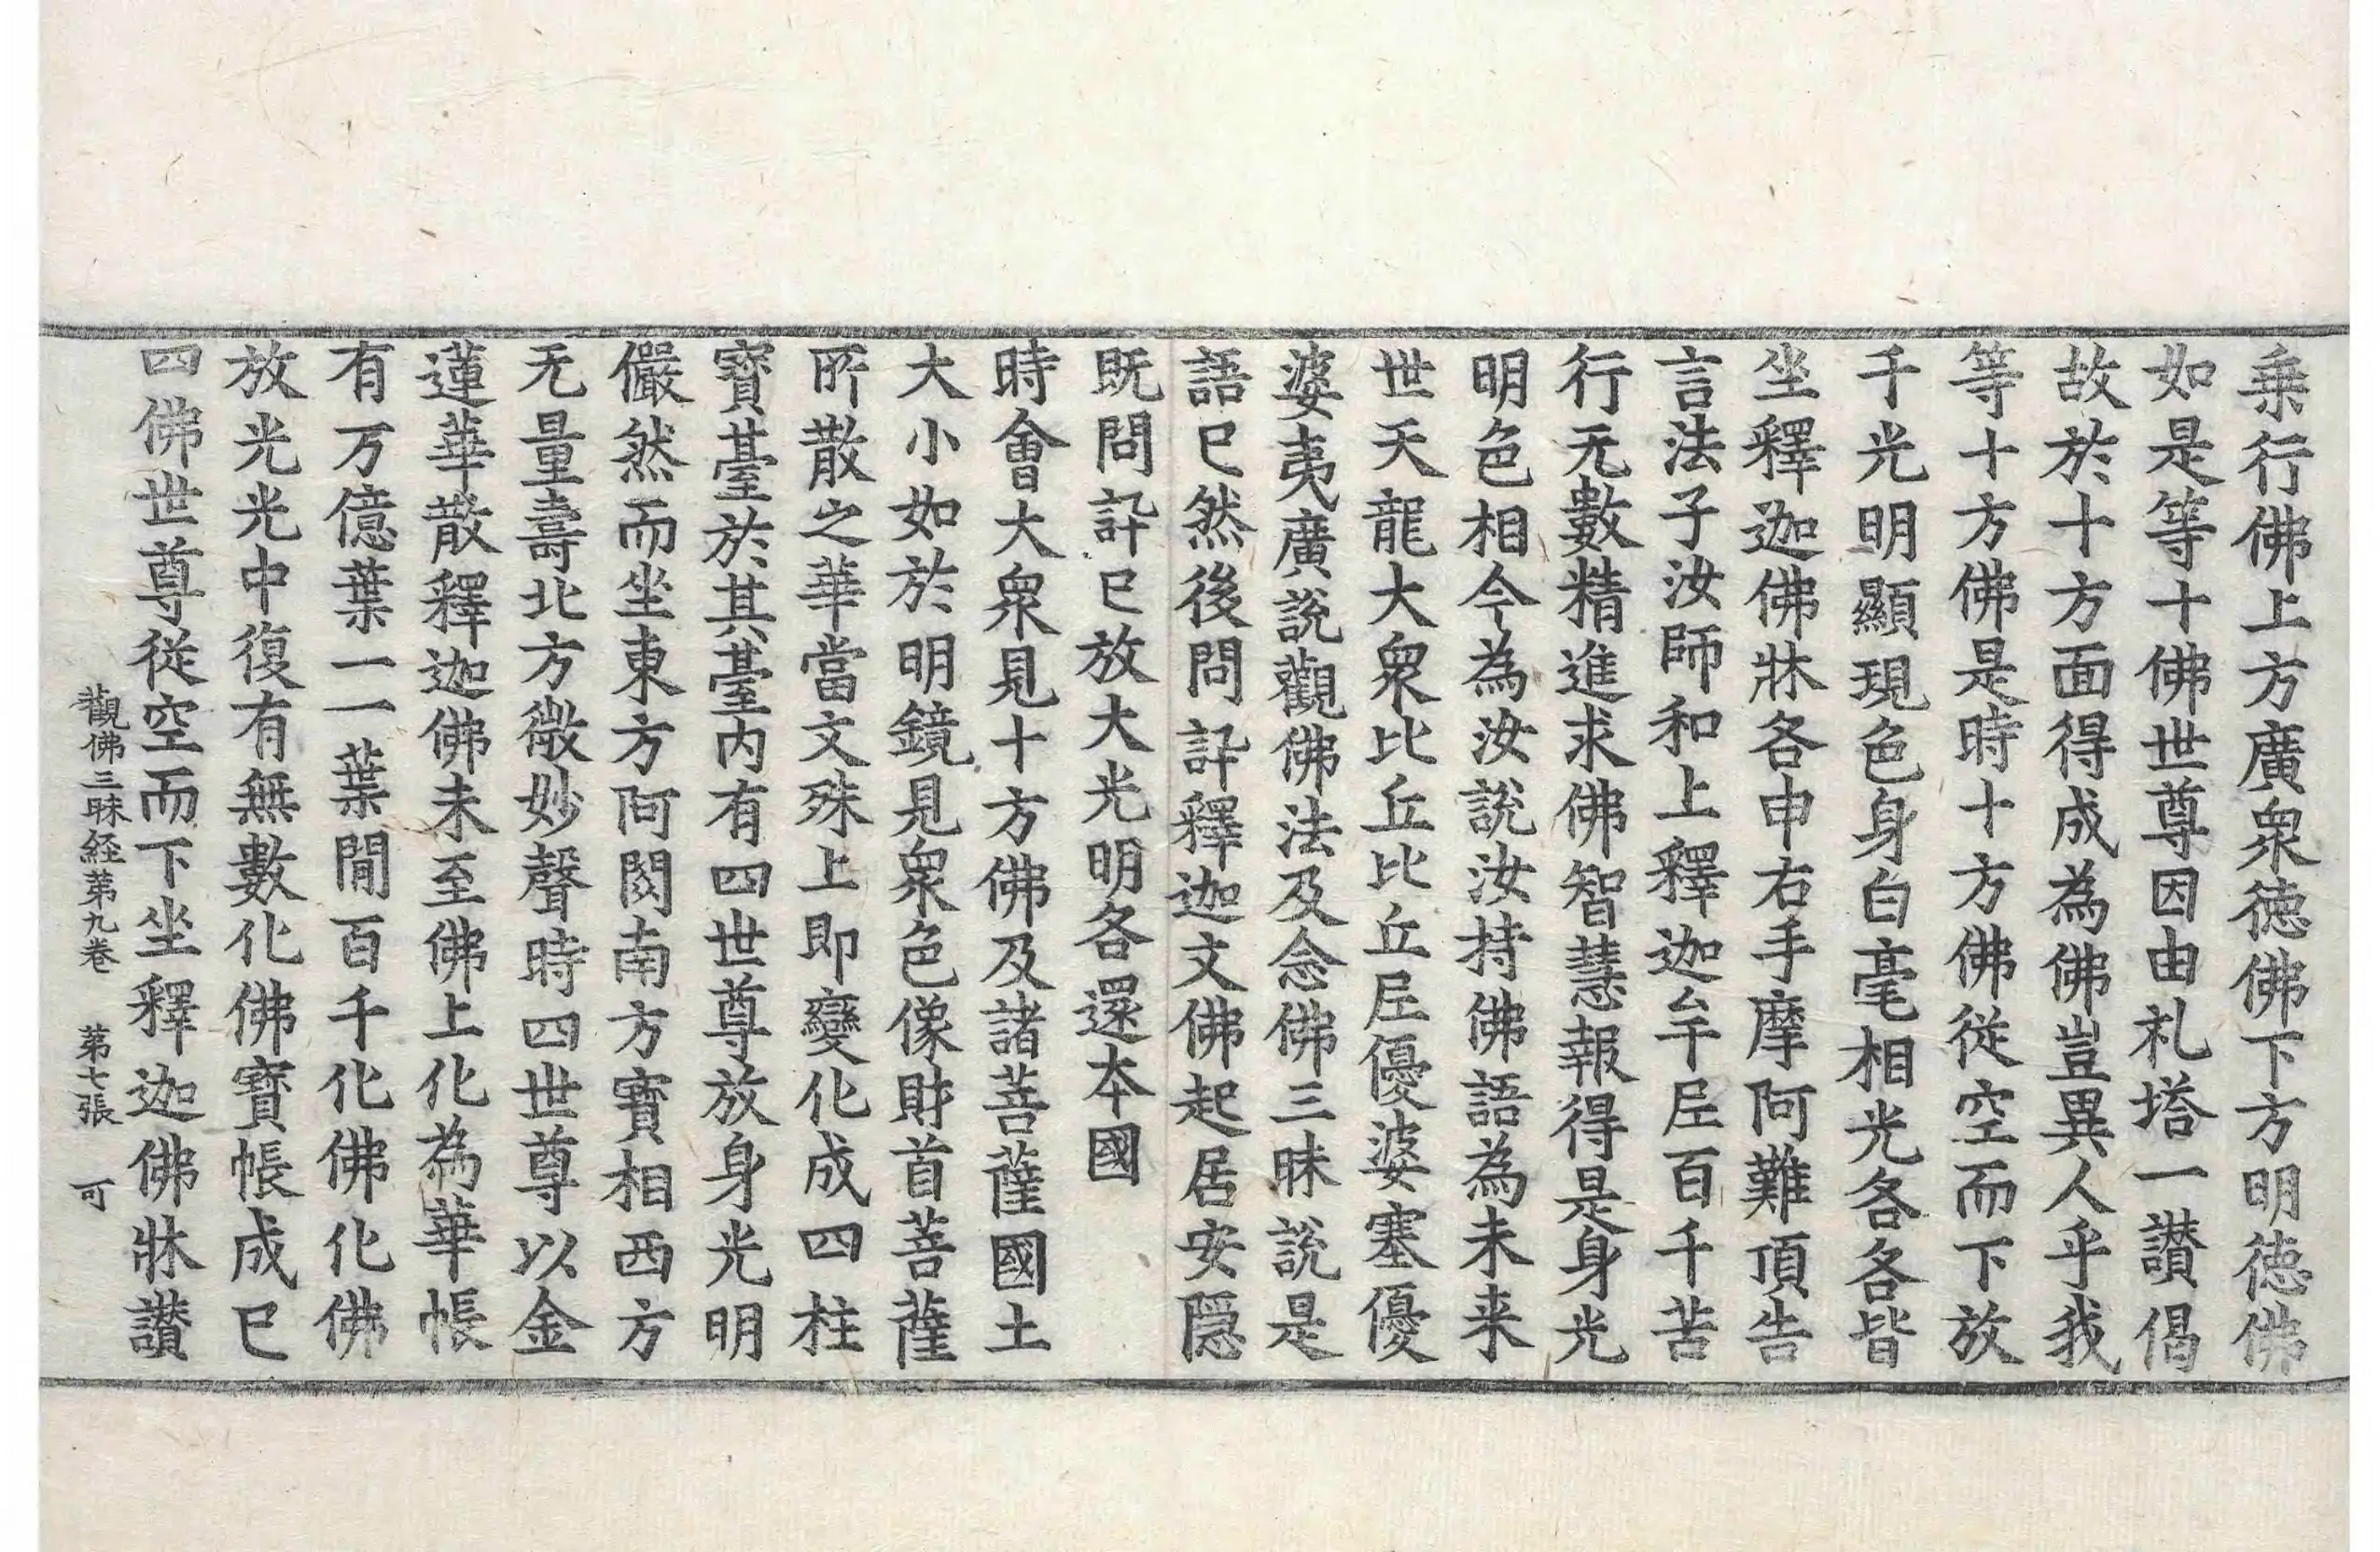 乗行佛上方廣衆徳佛下方明徳佛
如是等十佛世尊因由札塔一讃偈
故於十方面得成為佛豈異人乎我
等十方佛是時十方佛従空而下放
千光明顯現色身白毫相光各各皆
坐釋迦佛牀各申右手摩阿難頂告
言法子汝師和上釋迦牟尼百千苦
行无數精進求佛智慧報得是身光
明色相今為汝說汝持佛語為未来
世天龍大衆比丘比丘尼優婆塞優
婆夷廣説觀佛法及念佛三昧說是
語已然後問訊釋迦文佛起居安隠
既問訊已放大光明各還本國
時會大衆見十方佛及諸菩薩國土
大小如於明鏡見衆色像財首菩薩
所散之華當文殊上即變化成四柱
寳臺於其臺内有四世尊放身光明
儼然而坐東方阿閦南方寳相西方
无量壽北方微妙聲時四世尊以金
蓮華散釋迦佛未至佛上化為華帳
有万億葉一一葉間百千化佛化佛
放光光中復有無數化佛寳帳成已
四佛世尊従空而下坐釋迦佛牀讃
觀佛三昧経第九卷 第七張 可